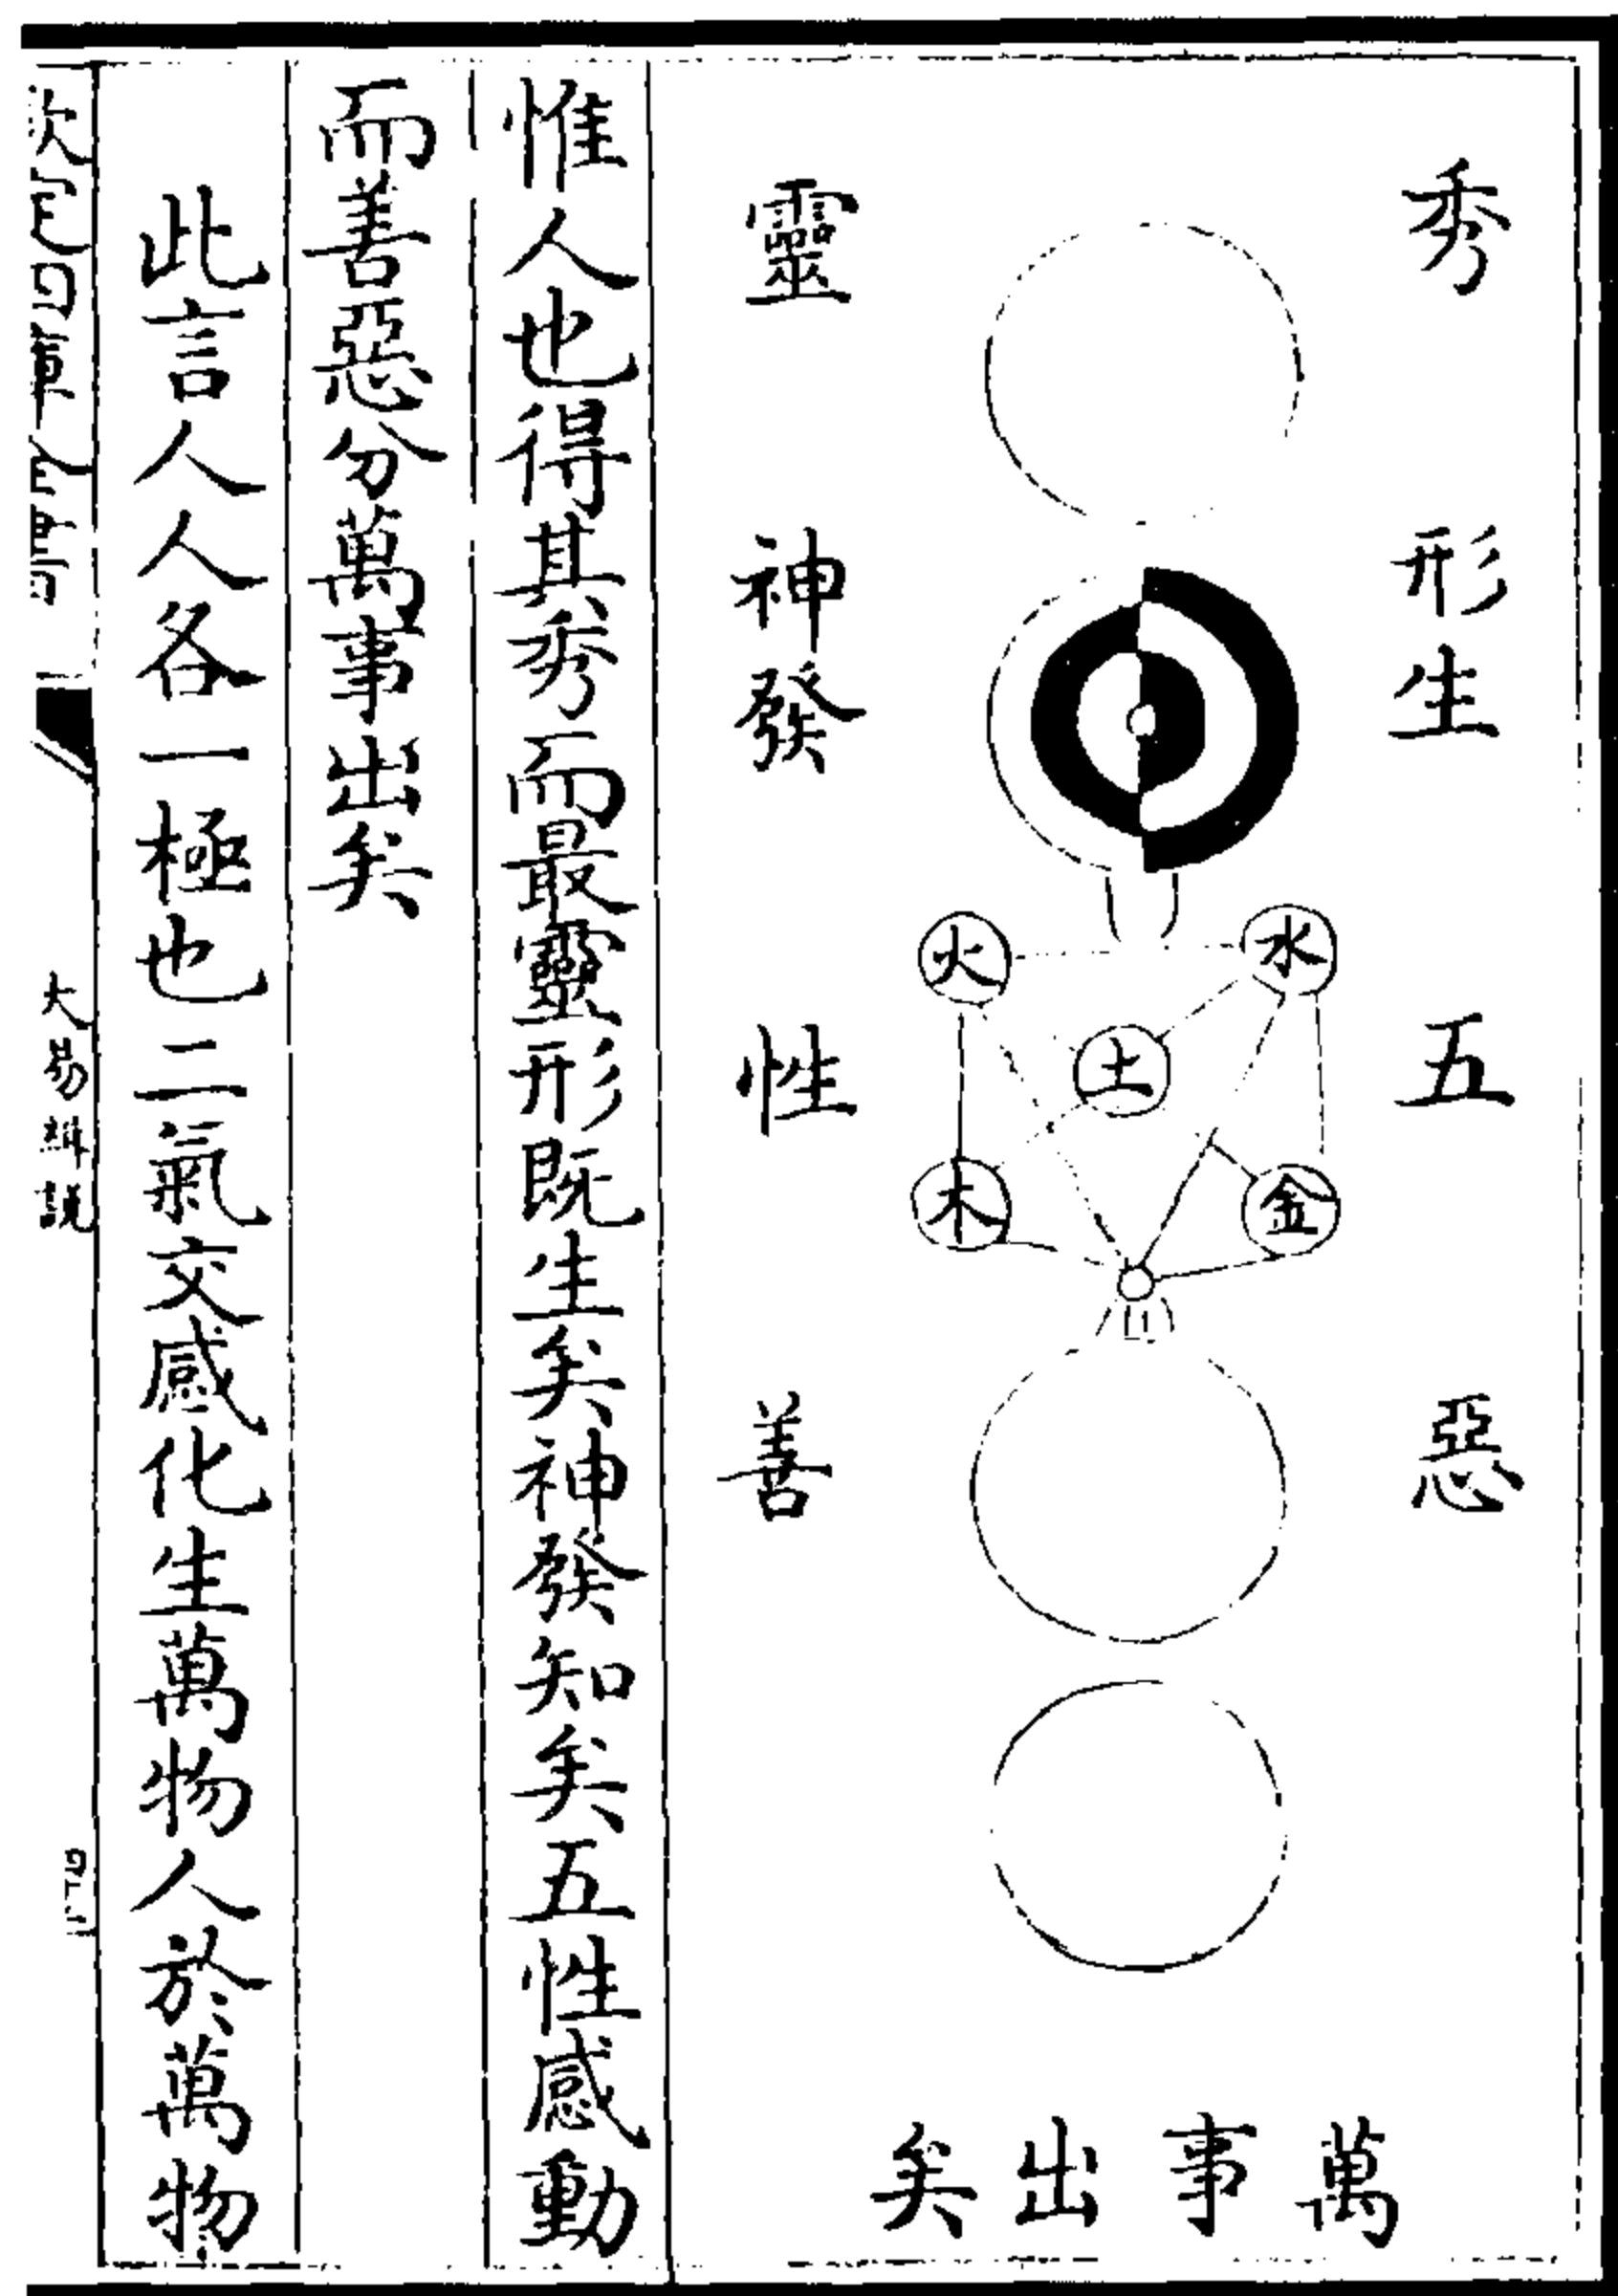 秀 靈
形生 神發
水 火
土
金 木
五 性
惡 善
萬事出矣
惟人也得其秀而最靈形既生矣神發知矣五性感動
而善惡分萬事出矣
此言人人各一極也二氣交感化生萬物人於萬物
欽定四庫全書
大易緝說